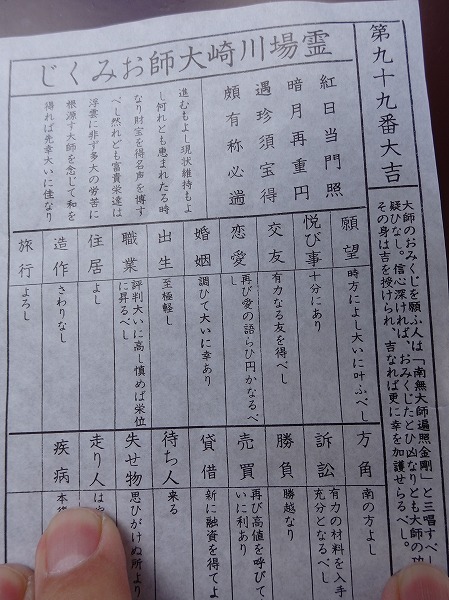 第九十九番大吉
大師のおみくじを願ふ人は「南無大師遍照金剛」と三唱すべし
疑ひなし。信心深ければ、おみくじたとひ凶なりとも大師の功
その身は吉を授けられ、吉なれば更に幸を加護せらるべし。
じくみお師大崎川場霊
紅日当門照
暗月再重円
遇珍須宝得
頗有称必遄
進むもよし現状維持もよ
し何れとも恵まれたる時
なり財宝を得名声を博す
べし然れども富貴栄達は
浮雲に非ず多大の労苦に
根源す大師を念じて和を
得れば先幸大いに佳なり
願望
時方によし大いに叶ふべし
悦び事
十分にあり
交友
有力なる友を得べし
恋愛
再び愛の語らひ円かなるべ
し
婚姻
調ひて大いに幸あり
出生
至極軽し
職業
評判大いに高し慎めば栄位
に昇るべし
住居
よし
造作
さわりなし
旅行
よろし
方角
南の方よし
訴訟
有力の材料を入手
充分となるべし
勝負
勝越なり
売買
再び高値を呼びて
いに利あり
貸借
新に融資を得てよ
待ち人
来る
失せ物
思ひがけぬ所より
走り人
は
疾病
本